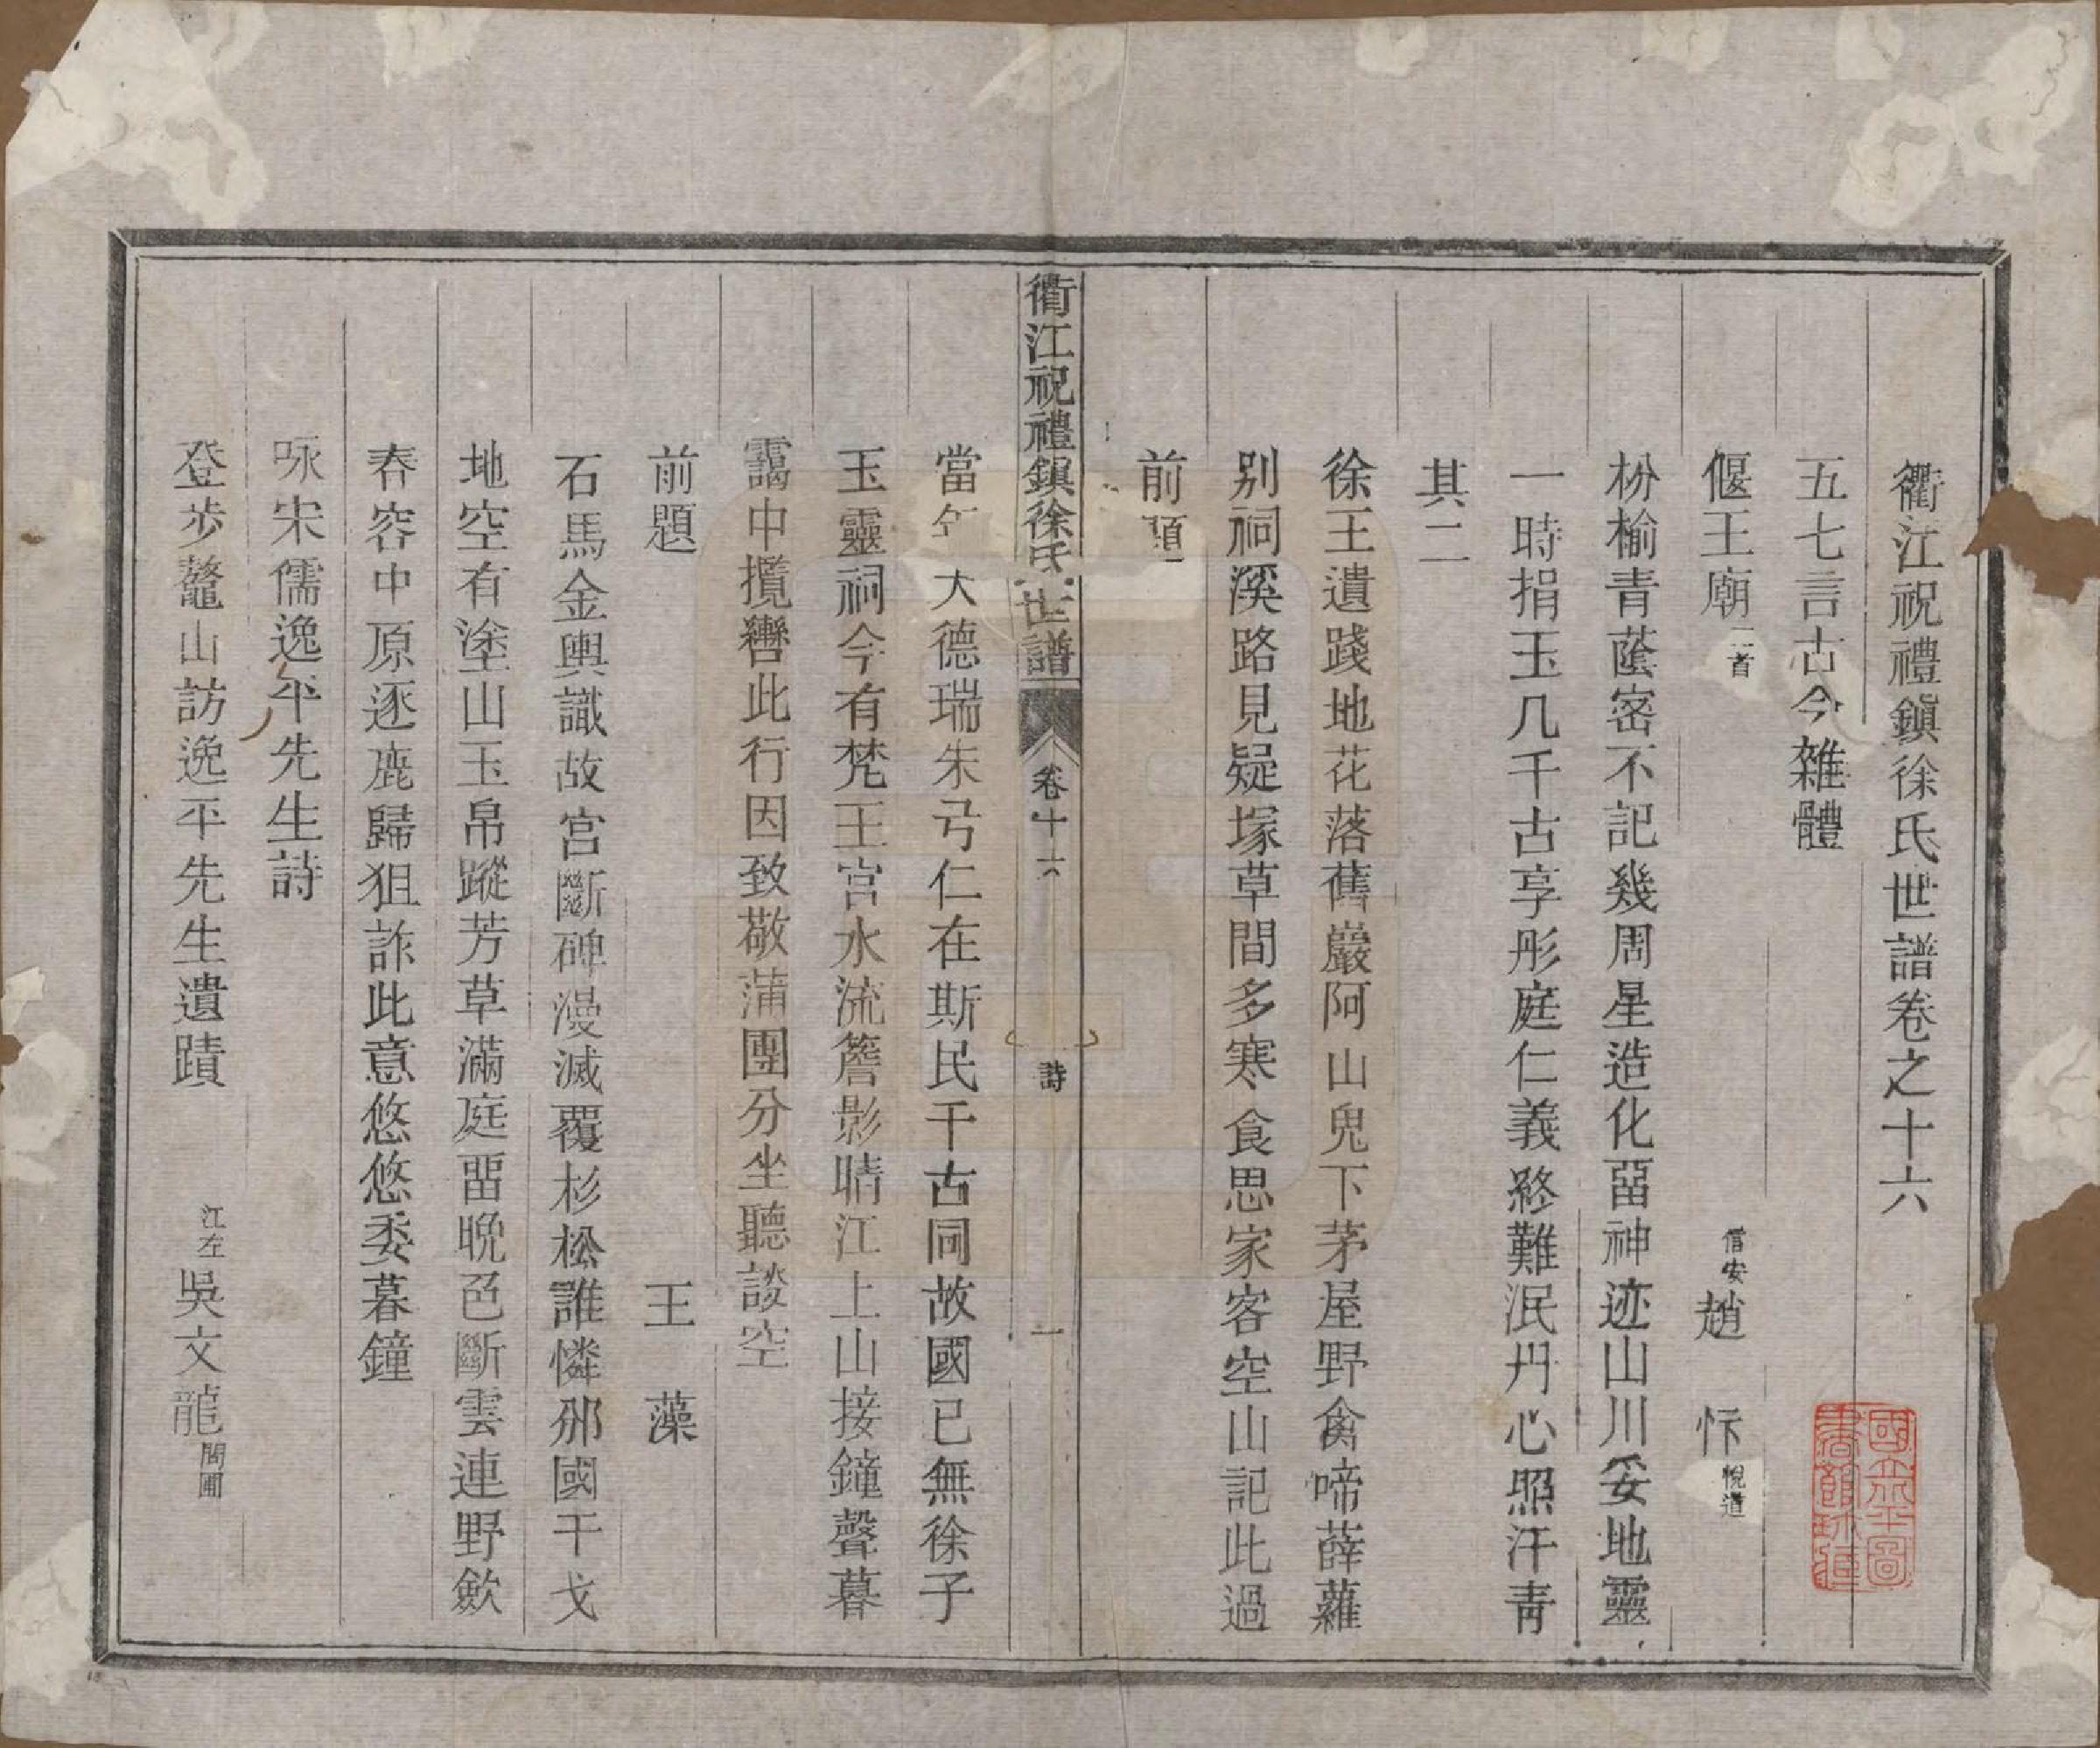 衢江祝禮鎮徐氏世譜卷之十六
五七言古今雜體
偃王廟二首 信安趙 忭悅道
枌榆青蔭密不記幾周星造化畱神迹山川妥地靈
一時捐玉几千古享彤庭仁義終難泯丹心照汗青
其二
徐王遺踐地花落舊巖阿山兒下茅屋野禽啼薜蘿
别祠溪路見疑塚草間多寒食思家客空山記此過
前題
衢江祝禮鎮徐氏世譜 卷十六 詩 一
當年大德瑞朱弓仁在斯民千古同故國已無徐子
玉靈祠今有梵王宮水流簷影晴江上山接鐘聲暮
靄中攬轡此行因致敬蒲團分坐聽談空
前題 王 藻
石馬金輿識故宮斷碑漫滅覆杉松誰憐邢國干戈
地空有塗山玉帛蹤芳草滿庭畱晩色斷雲連野歛
春容中原逐鹿歸狙詐此意悠悠委暮鐘
咏宋儒逸平先生詩
登步鼇山訪逸平先生遺蹟 江左吳文龍閬圃
國立北平圖書館珍藏